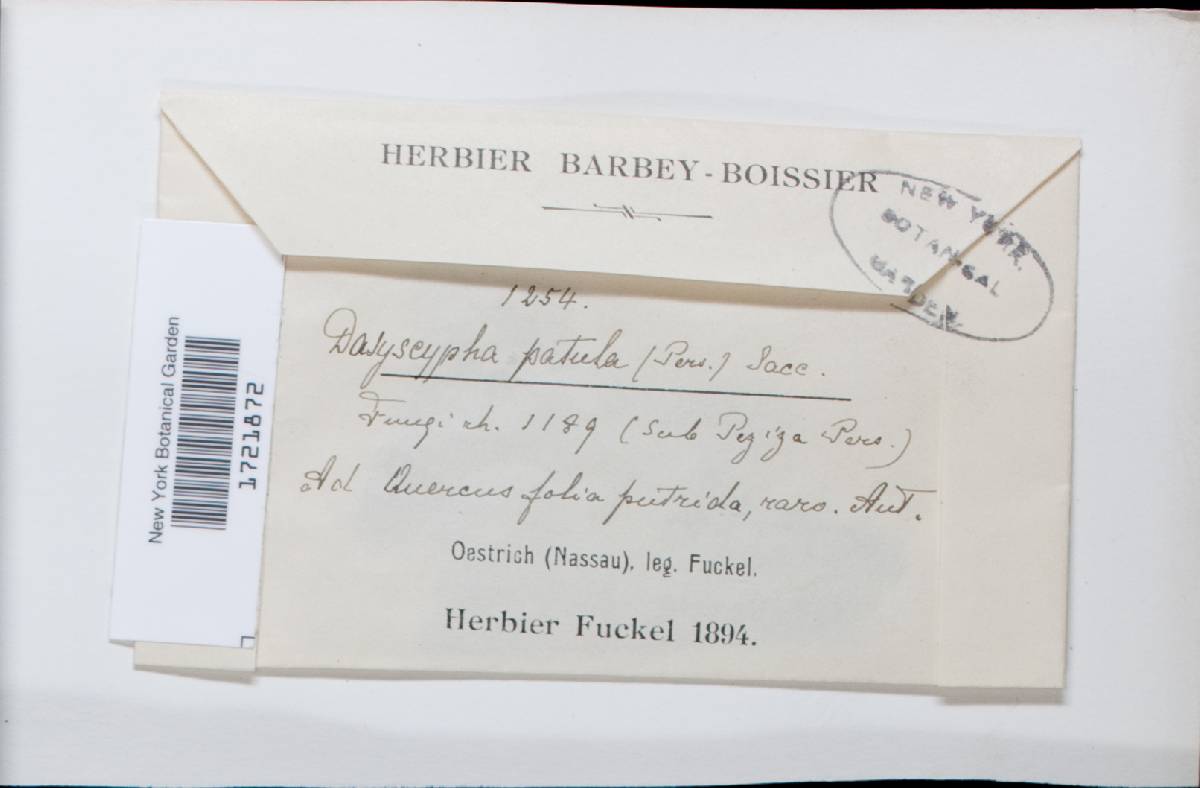 HERBIER BARBEY-BOISSIER
NEW YORK
BOTANICAL
GARDEN
1254.
Dasyscypha patula (Pers.) Sacc.
Fungi rh. 1189 (sub Peziza Pers.)
Ad Quercus folia putrida, raro. Aut.
Oestrich (Nassau), leg. Fuckel.
Herbier Fuckel 1894.
New York Botanical Garden
1721872